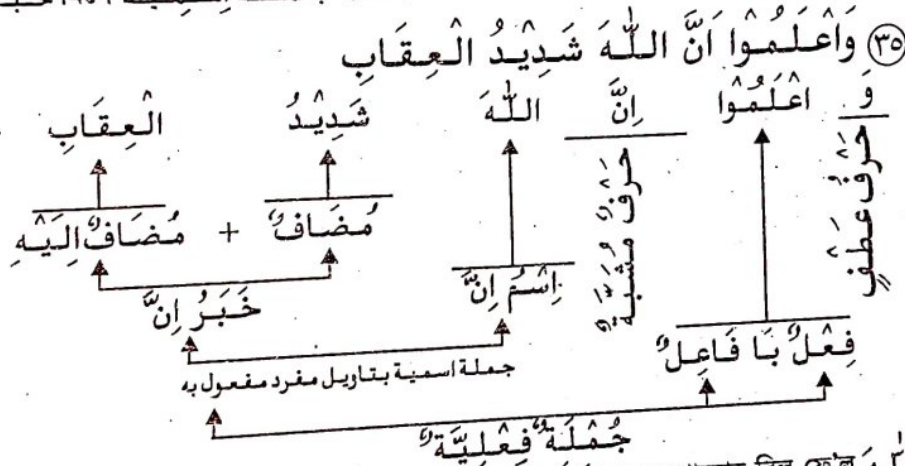 ٣٥ وَاعْلَمُوْا اَنَّ اللّٰهَ شَدِيْدُ الْعِقَابِ
وَ اعْلَمُوْا اِنَّ اللّٰهَ شَدِيْدُ الْعِقَابِ
حَرْفُ عَطْفٍ
حَرْفٌ مُشَبَّهٌ
مُضَافٌ + مُضَافٌ اِلَيْهِ
اِسْمُ اِنَّ
خَبَرُ اِنَّ
فِعْلٌ بَا فَاعِلٌ
جملة اسمية بتاويل مفرد مفعول به
جُمْلَةٌ فِعْلِيَّةٌ